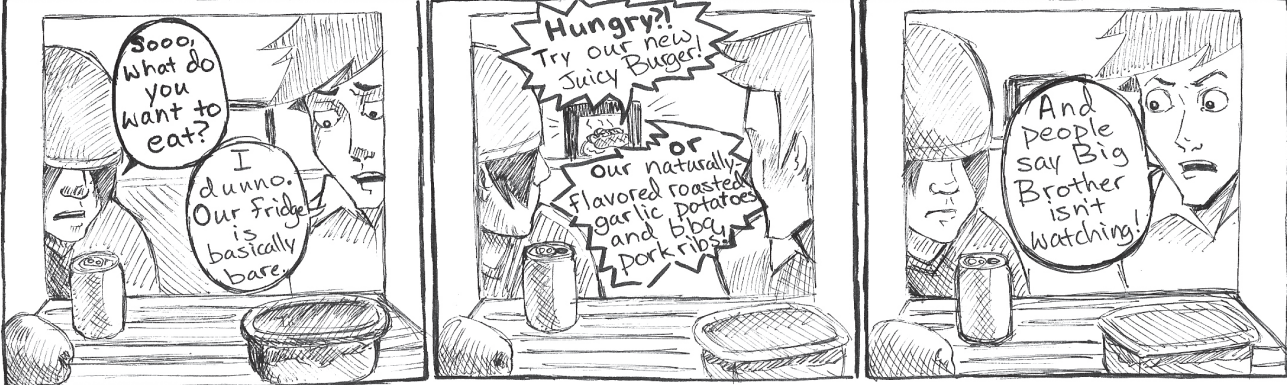 Sooo,
what do
you
want to
eat?
I
dunno.
Our fridge
is
basically
bare.
Hungry?!
Try our new
Juicy Burger!
or
our naturally-
flavored roasted
garlic potatoes
and bbq
pork ribs!
And
people
say Big
Brother
isn't
watching!